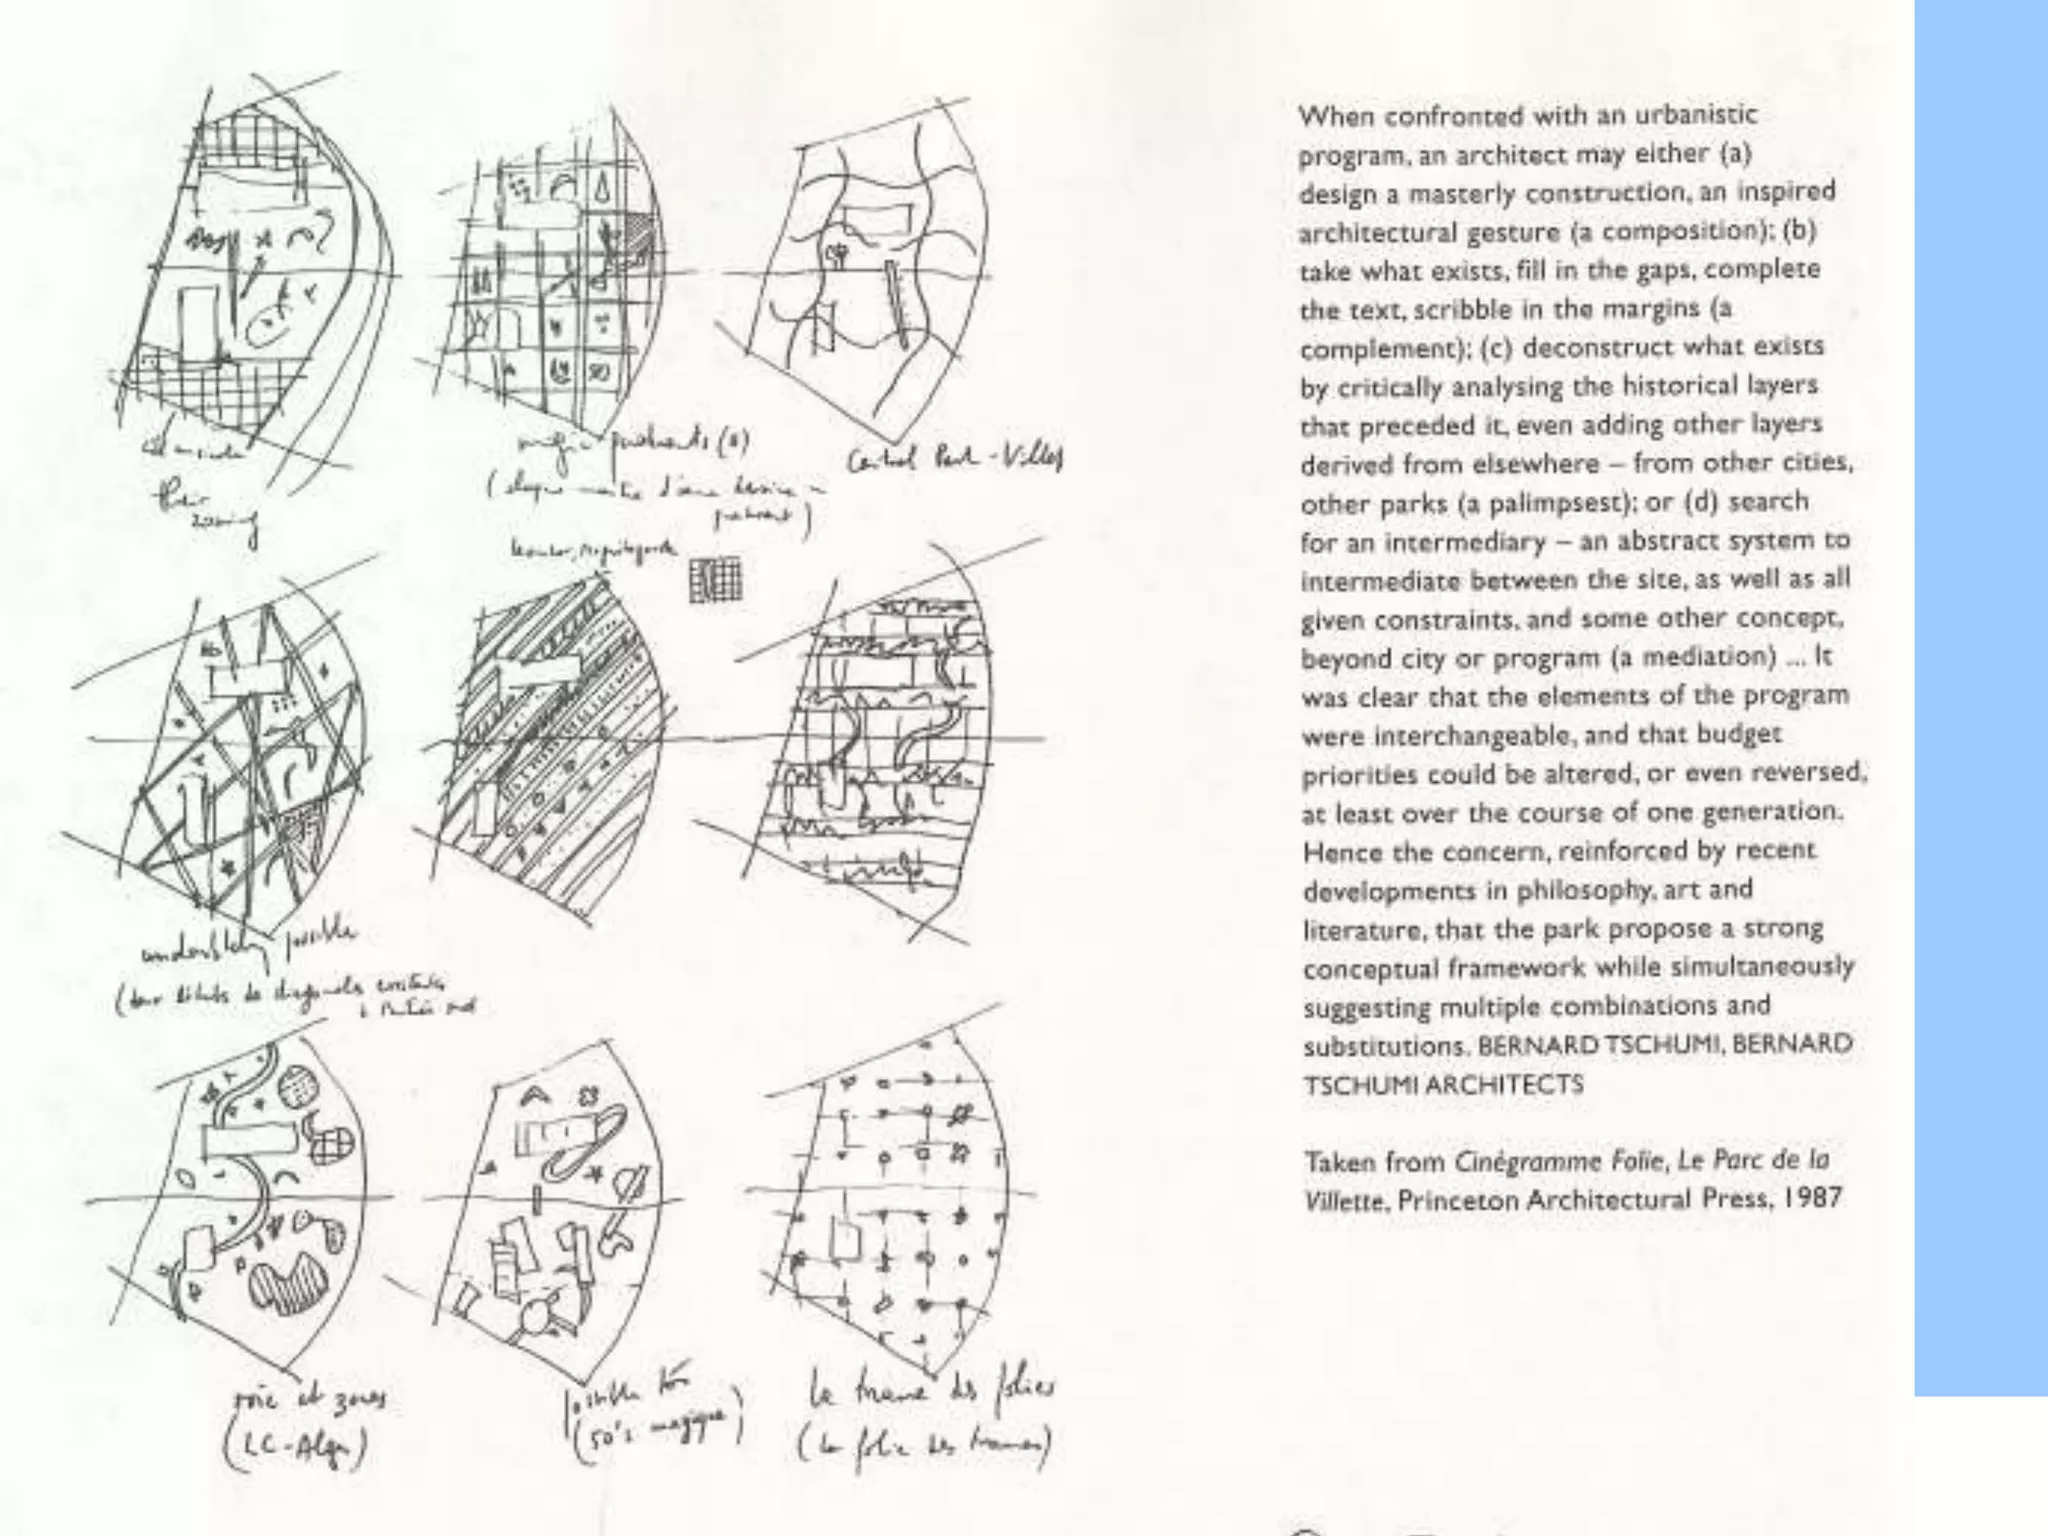 their
zoning
Central Park - Villet
possible
voie et zones
(LC-Alger)
possible
(50's magique)
la trame des folies
(la folie des trames)
When confronted with an urbanistic
program, an architect may either (a)
design a masterly construction, an inspired
architectural gesture (a composition); (b)
take what exists, fill in the gaps, complete
the text, scribble in the margins (a
complement); (c) deconstruct what exists
by critically analysing the historical layers
that preceded it, even adding other layers
derived from elsewhere – from other cities,
other parks (a palimpsest); or (d) search
for an intermediary – an abstract system to
intermediate between the site, as well as all
given constraints, and some other concept,
beyond city or program (a mediation) ... It
was clear that the elements of the program
were interchangeable, and that budget
priorities could be altered, or even reversed,
at least over the course of one generation.
Hence the concern, reinforced by recent
developments in philosophy, art and
literature, that the park propose a strong
conceptual framework while simultaneously
suggesting multiple combinations and
substitutions. BERNARD TSCHUMI, BERNARD
TSCHUMI ARCHITECTS
Taken from Cinégramme Folie, Le Parc de la
Villette, Princeton Architectural Press, 1987